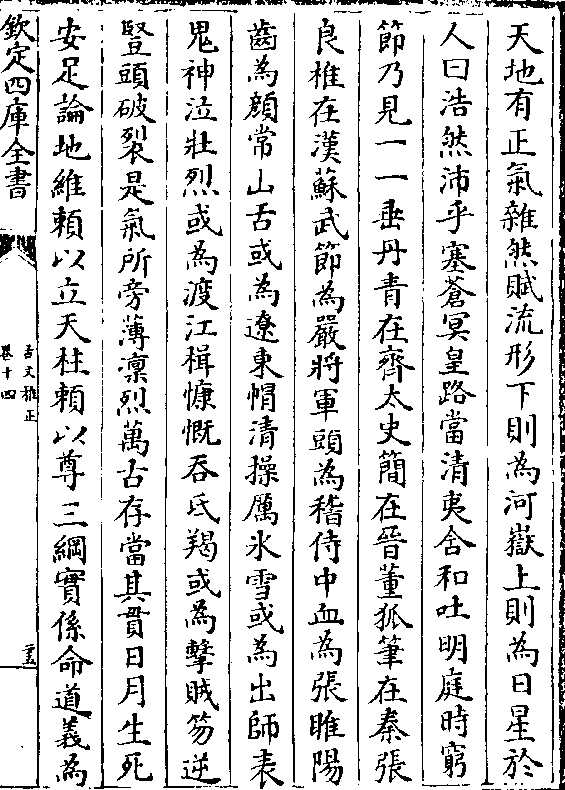 天地有正氣雜然賦流形下則為河嶽上則為日星於
人曰浩然沛乎塞蒼冥皇路當清夷含和吐明庭時窮
節乃見一一垂丹青在齊太史簡在晉董狐筆在秦張
良椎在漢蘇武節為嚴將軍頭為嵇侍中血為張睢陽
齒為顔常山舌或為遼東帽清操厲氷雪或為出師表
鬼神泣壯烈或為渡江楫慷慨吞氐羯或為擊賊笏逆
豎頭破裂是氣所旁薄凛烈萬古存當其貫日月生死
安足論地維頼以立天柱頼以尊三綱實係命道義為
欽定四庫全書
古文雅正
卷十四